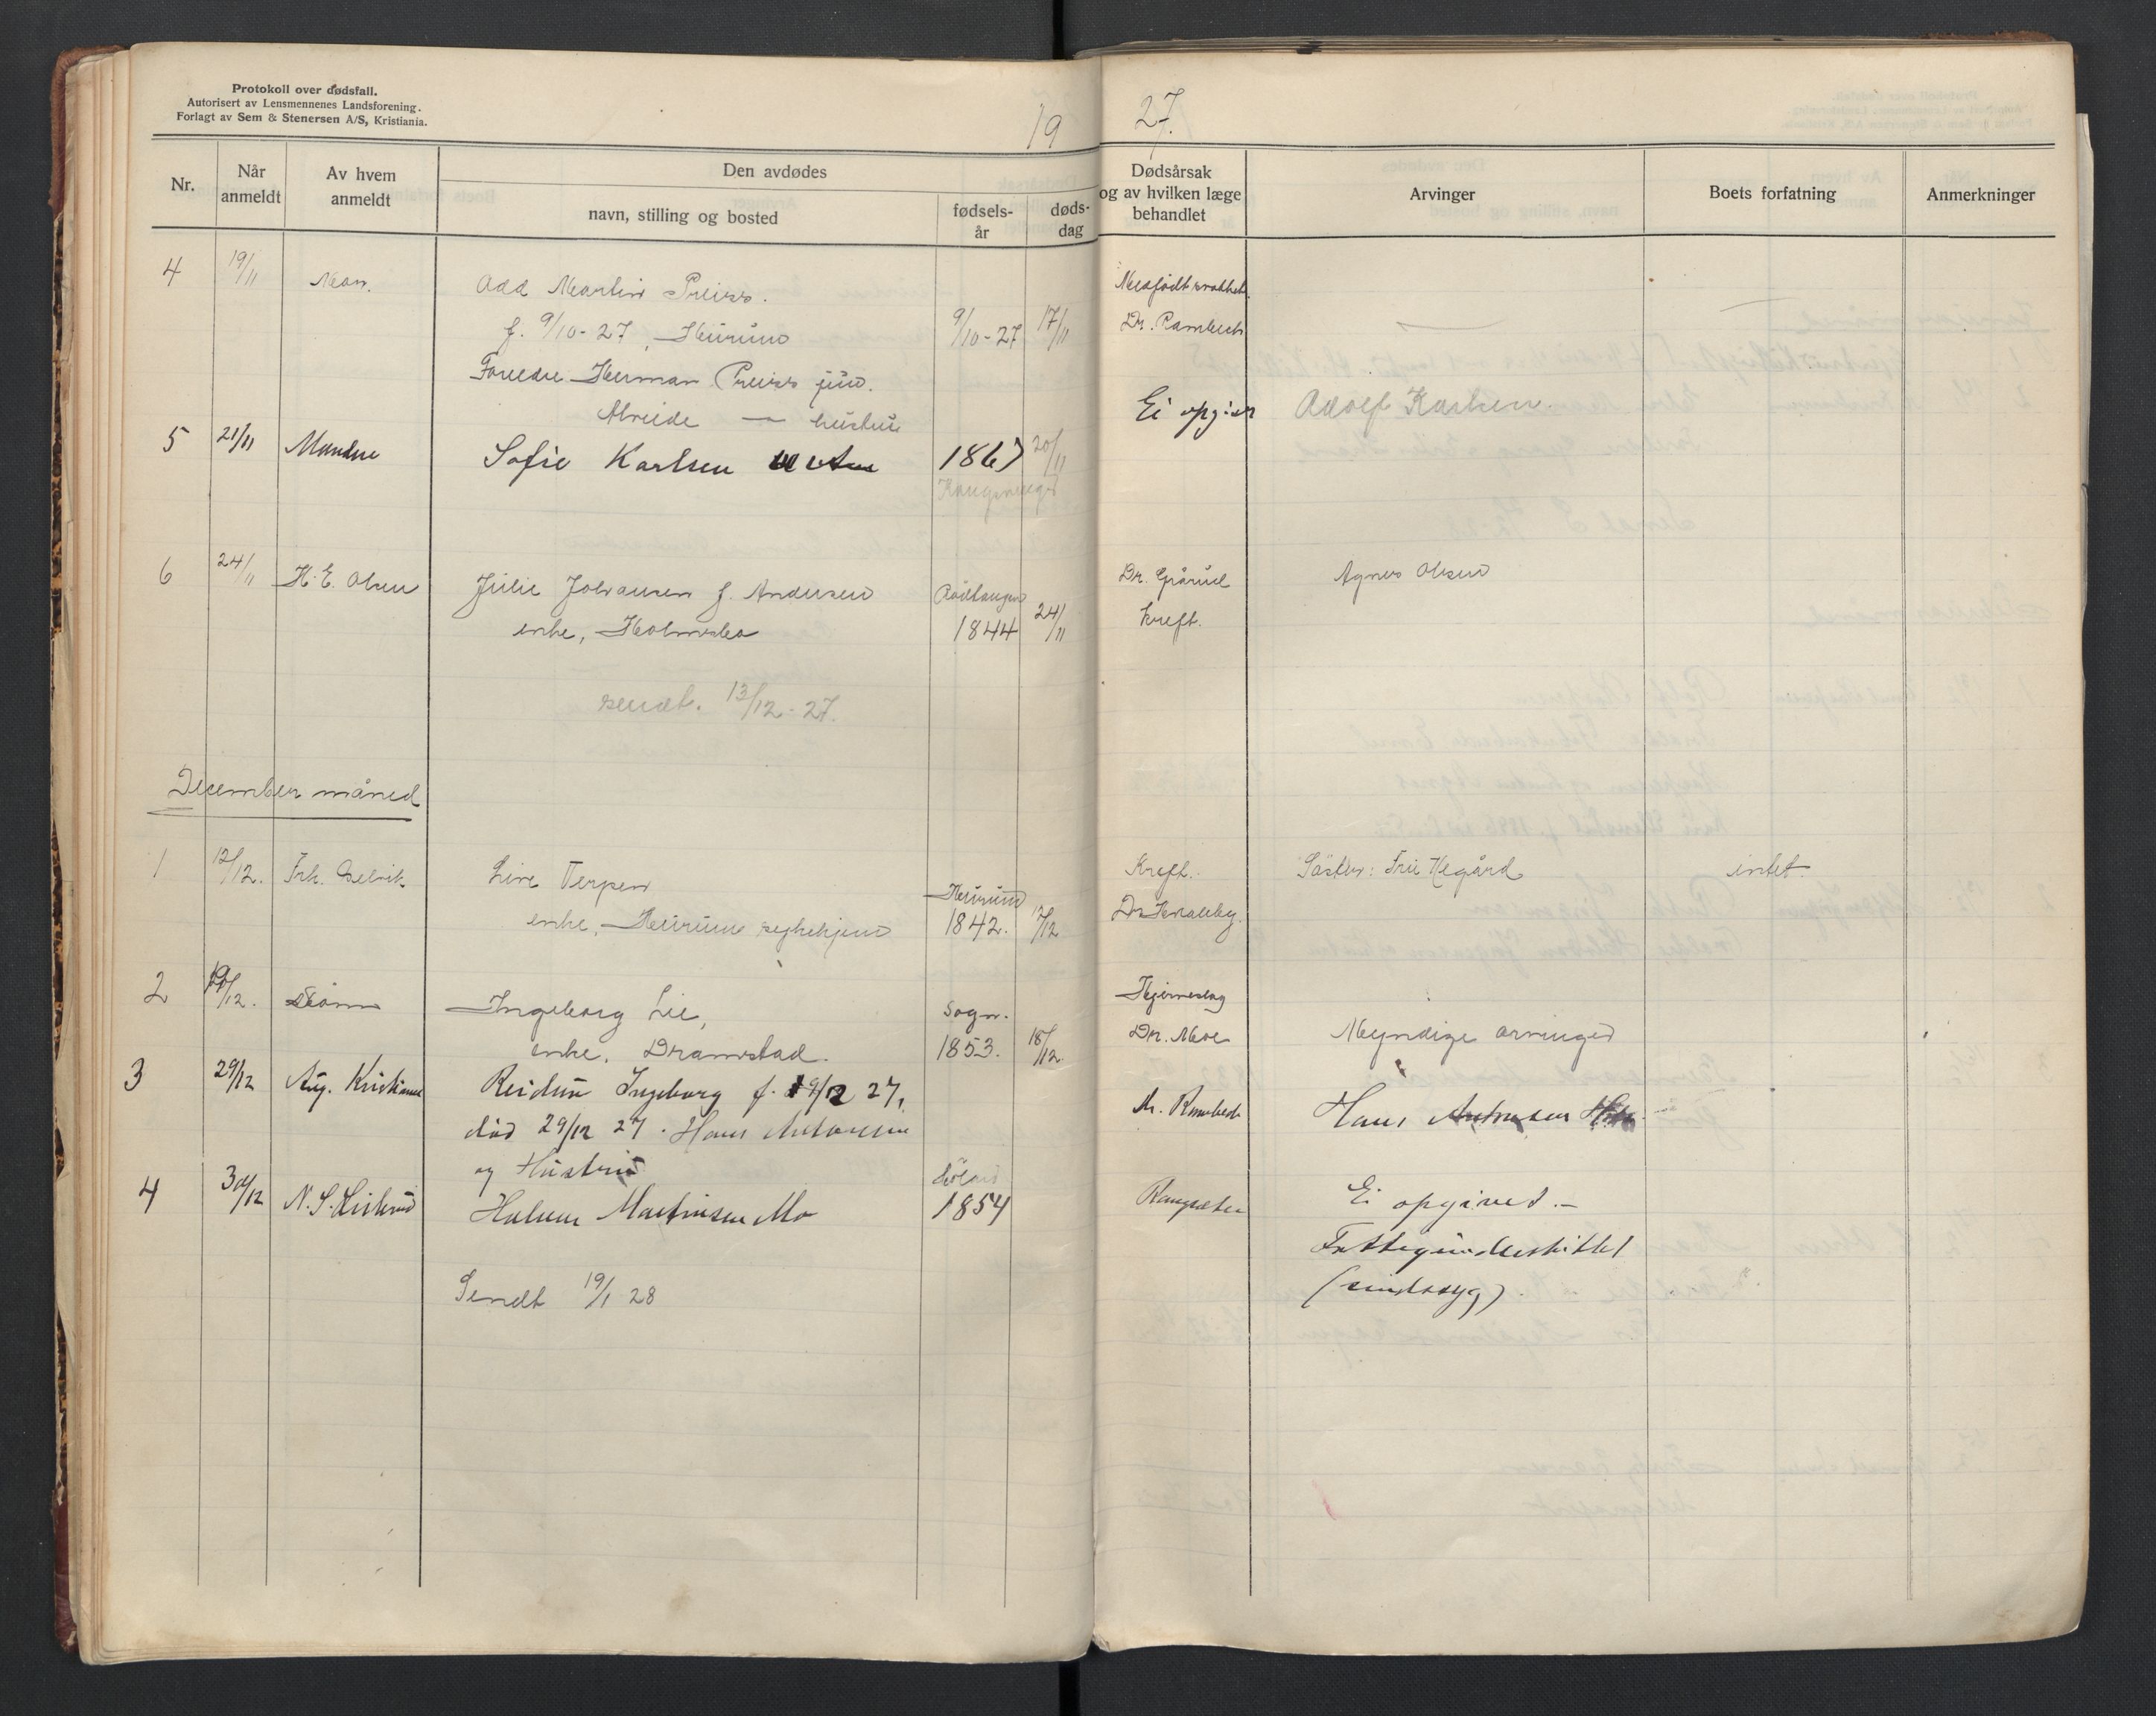 Protokoll over dødsfall.
Autorisert av Lensmennenes Landsforening.
Forlagt av Sem & Stenersen A/S, Kristiania.
19 27.
Nr.
Når anmeldt
Av hvem anmeldt
Den avdødes
navn, stilling og bosted
fødsels-år
døds-dag
Dødsårsak og av hvilken læge behandlet
Arvinger
Boets forfatning
Anmerkninger
4 19/11 Odd Martin Preiss.
f. 9/10-27, Hurum 9/10-27 17/11
Medfødt svakhet.
Dr. Rambech
Foreldre Herman Preiss jun.
hustru
5 21/11 Manden Sofie Karlsen 1867 20/11
Ei opgivet Adolf Karlsen.
6 24/11 H. E. Olsen Julie Johansen f. Andersen
enke, Holmsbo 1844 24/11
Dr. Kreft.
Agnes Olsen
sendt. 13/12-27.
December måned
1 12/12. Frk. Selvik Live Terpen
enke, Hurum sykehjem Hurum 1842. 12/12
Kreft.
Søster: Fru Hegård intet.
2 19/12. Sönn Ingeborg Lie,
enke, Dramstad. Sogn. 1853. 18/12.
Hjerneslag
Dr. Moe Myndige arvinger
3 29/12 Aug. Kristiansen Reidun Ingeborg f. 19/12 27,
død 29/12 27. Hans Antonsen
og Hustru
Dr. Rambech Hans Antonsen
4 30/12 Martinsen Mo 1854
Ei opgivet.-
Fattigunderstøttet
(sindssyg).
Sendt 19/1 28